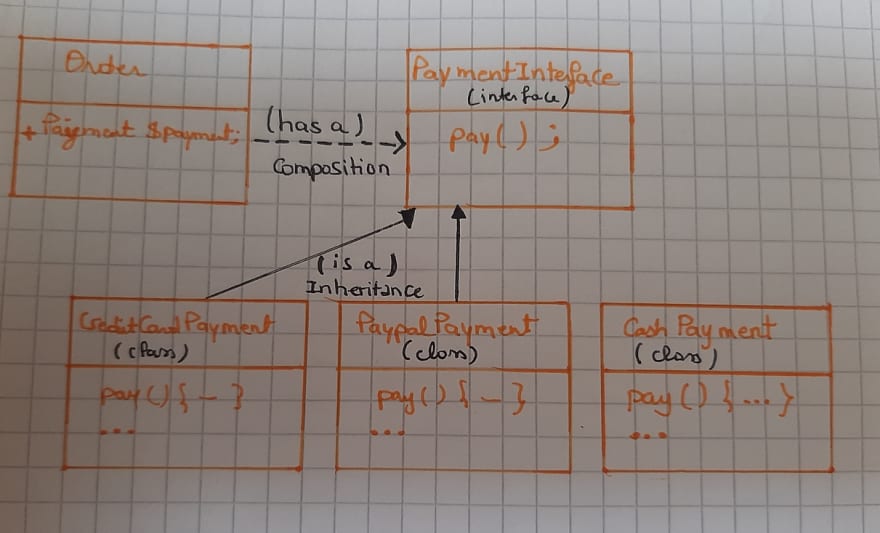 Order
+ Payement $payment;
(has a)
Composition
PaymentInteface
(interface)
pay() ;
(is a)
Inheritance
CreditCardPayment
(class)
pay(){ - }
...
PaypalPayment
(class)
pay(){ - }
...
Cash Payment
(class)
pay(){ ... }
...